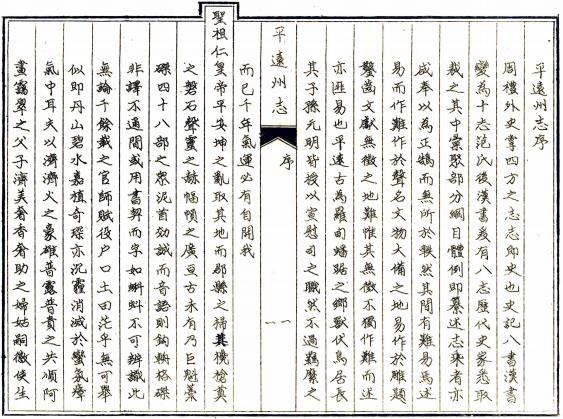 平遠州志序
周禮外史掌四方之志志即史也史記八書漢書
變為十志范氏後漢書爰有八志歷代史家悉取
裁之其中彙聚部分綱目體例即纂述志乘者亦
咸奉以為正鵠而無所於軼然其間有難易焉述
易而作難作於聲名文物大備之地易作於雕題
鑿齒文獻無徵之地難惟其無徵不獨作難而述
亦匪易也平遠古為羅甸蟠踞之鄉獸伏鳥居長
其子孫元明皆授以宣慰司之職然不過羈縻之
平遠州志 序 一
而已千年氣運必有自開我
聖祖仁皇帝平安坤之亂取其地而郡縣之掃其欃槍奠
之磐石聲靈之赫幅幀之廣亘古未有乃巨魁蓁
磔四十八部之眾泥首効誠而音語則鉤輈格磔
非譯不通間或用書契而字如蝌蚪不可辨識此
無論千餘載之官師賦役户口土田茫乎無可舉
似即丹山碧水嘉植奇琛亦沉霾消滅於蠻氛瘴
氣中耳夫以濟濟火之豪雄普露普貴之共順阿
畫靄翠之父子濟美奢香奢助之婦姑嗣徽使生